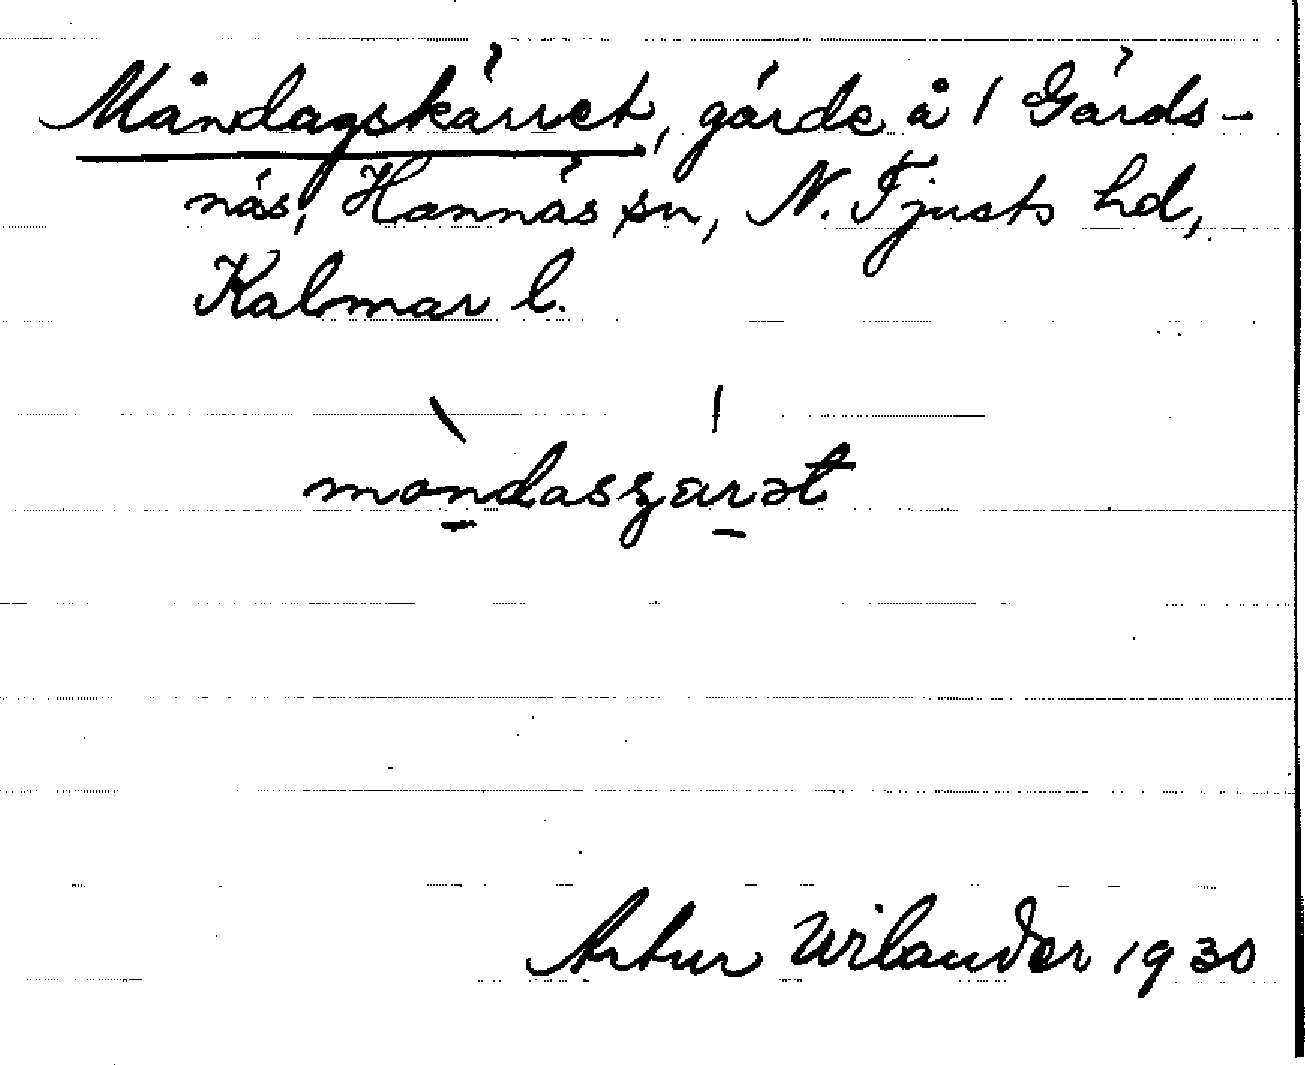 Måndagskärret, gärde å 1 Gärds-
näs, Hannäs sn, N. Tjusts hd,
Kalmar l.
mòndaszárət
Artur Wilander 1930